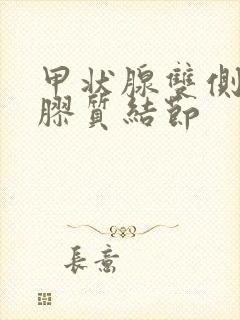 甲状腺雙側
膠質結節
長意